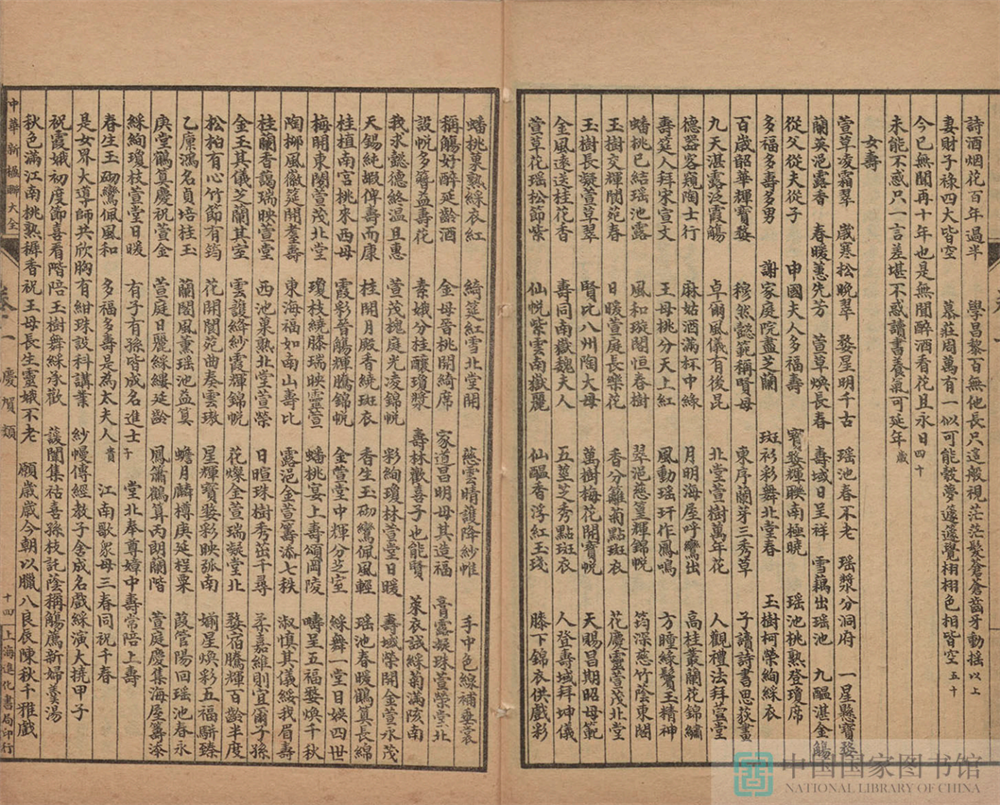 詩酒烟花百年過半 學昌黎百無他長只這般視茫茫髮蒼蒼齒牙動搖以上
妻財子祿四大皆空 慕莊周萬有一似可能彀夢蘧蘧覺栩栩色相皆空五十
今已無聞再十年也是無聞醉酒看花且永日四十
未能不惑只一言差堪不惑讀書養氣可延年歲
女壽
萱草凌霜翠 歲寒松晚翠 婺星明千古 瑤池春不老 瑤漿分洞府 一星懸寶婺
蘭英浥露香 春暖蕙先芳 萱草煥長春 壽域日呈祥 雪藕出瑤池 九醞湛金觴
從父從夫從子 申國夫人多福壽 寶婺輝映南極曉 瑤池桃熟登瓊席
多福多壽多男 謝家庭院盡芝蘭 斑衫彩舞北堂春 玉樹柯榮絢綵衣
百歲韶華輝寶婺 穆然懿範稱賢母 東序蘭芽三秀草 子讀詩書思荻畫
九天湛露泛霞觴 卓爾風儀有後昆 北堂萱樹萬年花 人觀禮法拜萱堂
德器客窺陶士行 麻姑酒滿杯中綠 月明海屋呼鸞出 高柱叢蘭花錦繡
壽筵人拜宋宣文 王母桃分天上紅 風動瑤玕作鳳鳴 方瞳綠鬢玉精神
蟠桃已結瑤池露 風和璇閣恒春樹 翠浥慈篁輝錦帨 筠深慈竹陰東閣
玉樹交輝閬苑春 日暖萱庭長樂花 香分籬菊點斑衣 花慶靈萱茂北堂
玉樹長凝萱草翠 賢比八州陶大母 萬樹梅花開寶帨 天賜昌期昭母範
金風遠送桂花香 壽同南嶽魏夫人 五莖之秀點斑衣 人登壽域拜坤儀
萱草花瑤松節紫 仙帨紫雲南嶽麗 仙醞香浮紅玉琖 膝下錦衣供戲彩
蟠桃菓熟綵衣紅 綺筵紅雪北堂開 慈雲晴護降紗帷 手中色線補袞裳
稱觴好醉延齡酒 金母晉桃開綺席 家道昌明母其造福 膏露凝珠萱榮堂北
設帨多簪益壽花 素娥分桂釀瓊漿 壽林歡喜子也能賢 萊衣試綵菊滿陔南
我求懿德煞溫且惠 萱茂槐庭光凌錦帨 彩絢瓊林萱堂日暖 壽域榮開金萱永茂
天錫純嘏俾壽而康 桂開月殿香繞斑衣 香生玉砌鸞佩風輕 瑤池春暖鶴算長綿
桂植南宮桃來西母 霞彩晉觴輝騰錦帨 金萱堂中輝分芝室 綵舞一堂日娛四世
梅開東閣萱茂北堂 瓊枝繞膝瑞映靈萱 蟠桃宴上壽頌岡陵 疇呈五福婺煥千秋
陶柳風徽筵開耋壽 東海福如南山壽比 露浥金萱籌添七秩 淑慎其儀綏我眉壽
桂蘭香靄瑞映萱堂 西池菓熟北堂萱榮 日暄珠樹秀出千尋 柔嘉維則宜爾子孫
金玉其儀芝蘭其室 雲護絳紗霞輝錦帨 花燦金萱瑞凝堂北 婺宿騰輝百齡半度
松柏有心竹節有筠 花開閬苑曲奏雲璈 星輝寶婺彩映弧南 媊星煥彩五福駢臻
乙廉鴻名員培桂玉 蘭閣風薰瑤池益算 蟾月麟樽庚延桯粟 葭管陽回瑤池春永
庚堂鶴算慶祝萱金 萱庭日麗綵縷延齡 鳳簫鶴算丙朗蘭階 萱庭慶集海屋籌添
綵絢瓊枝萱堂日暖 有子有孫皆成名進士子 堂北奉尊嫜中壽常陪上壽
春生玉砌鸞佩風和 多福多壽是為太夫人貴 江南歇眾母三春同祝千春
是女界大導師共欣胸有紺珠設科講業 紗幔傳經教子舍成名戲綵演大撓甲子
祝霞娥初度節喜看階陪玉樹舞綵承歡 諼闈集祜喜孫枝託陰稱觴薦新婦羹湯
秋色滿江南桃熟稱香祝王母長生靈娥不老 願歲歲今朝以臘八良辰陳秋千雅戲
中華新楹聯大全 卷一 慶賀類 十四 上海進化書局印行
中国国家图书馆
NATIONAL LIBRARY OF CHINA